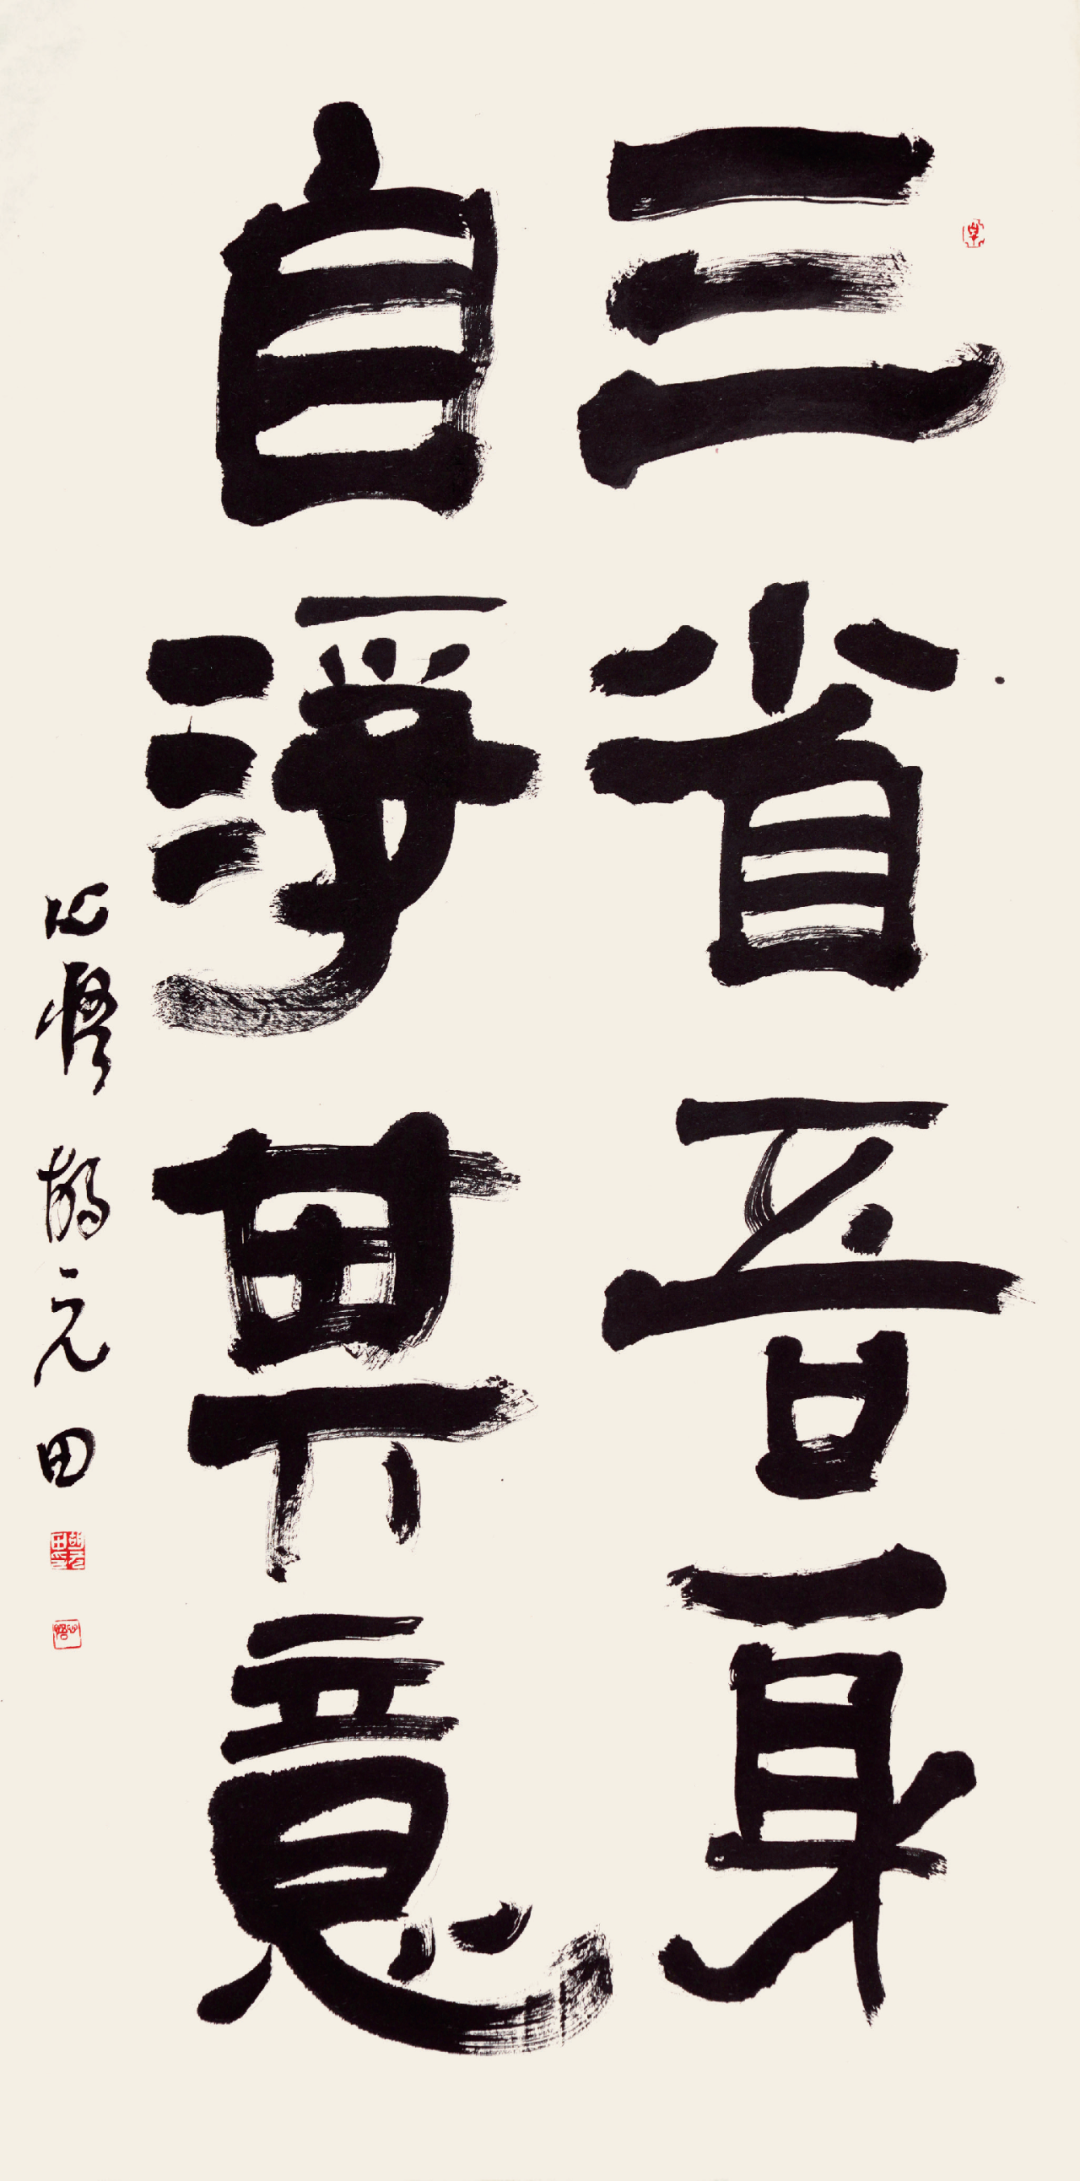 三省吾身
自淨其意
心悟 胡元田